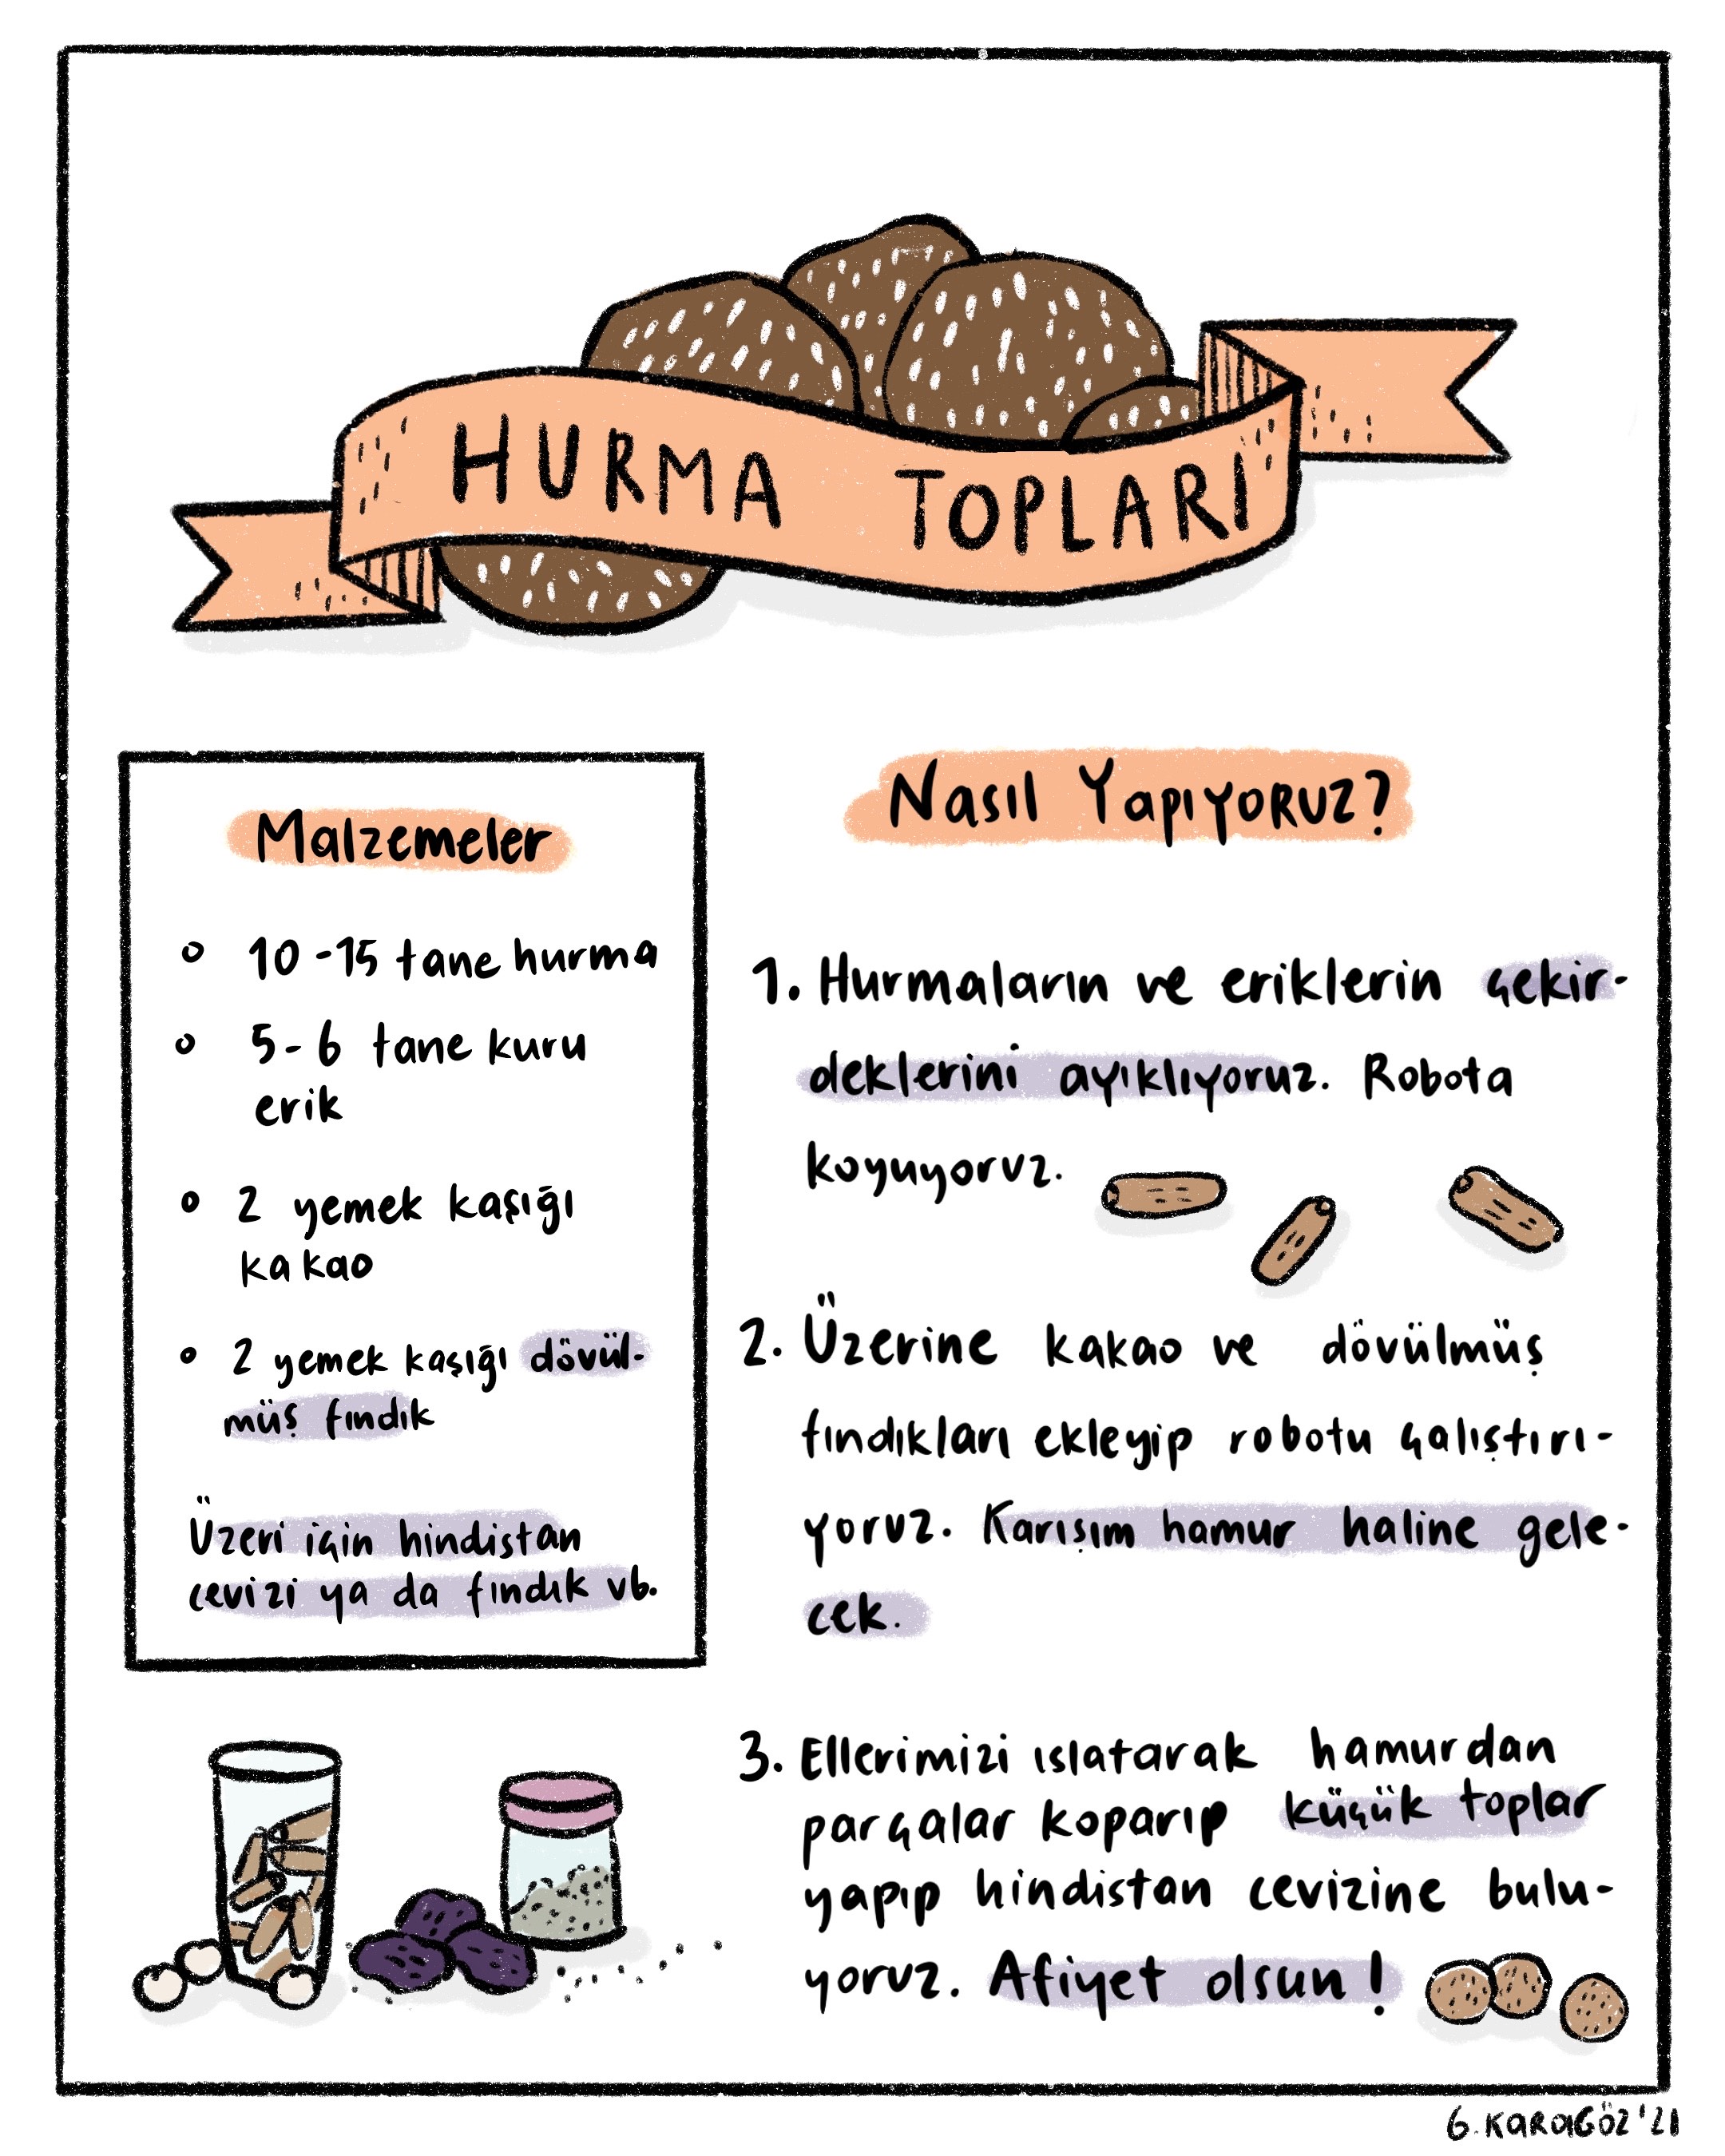 HURMA TOPLARI
Malzemeler
10-15 tane hurma
5-6 tane kuru
erik
2 yemek kaşığı
kakao
2 yemek kaşığı dövül-
müş fındık
Üzeri için hindistan
cevizi ya da fındık vb.
Nasıl Yapıyoruz?
1. Hurmaların ve eriklerin çekir-
deklerini ayıklıyoruz. Robota
koyuyoruz.
2. Üzerine kakao ve dövülmüş
fındıkları ekleyip robotu çalıştırı-
yoruz. Karışım hamur haline gele-
cek.
3. Ellerimizi ıslatarak hamurdan
parçalar koparıp küçük toplar
yapıp hindistan cevizine bulu-
yoruz. Afiyet olsun!
G.KARAGÖZ'21